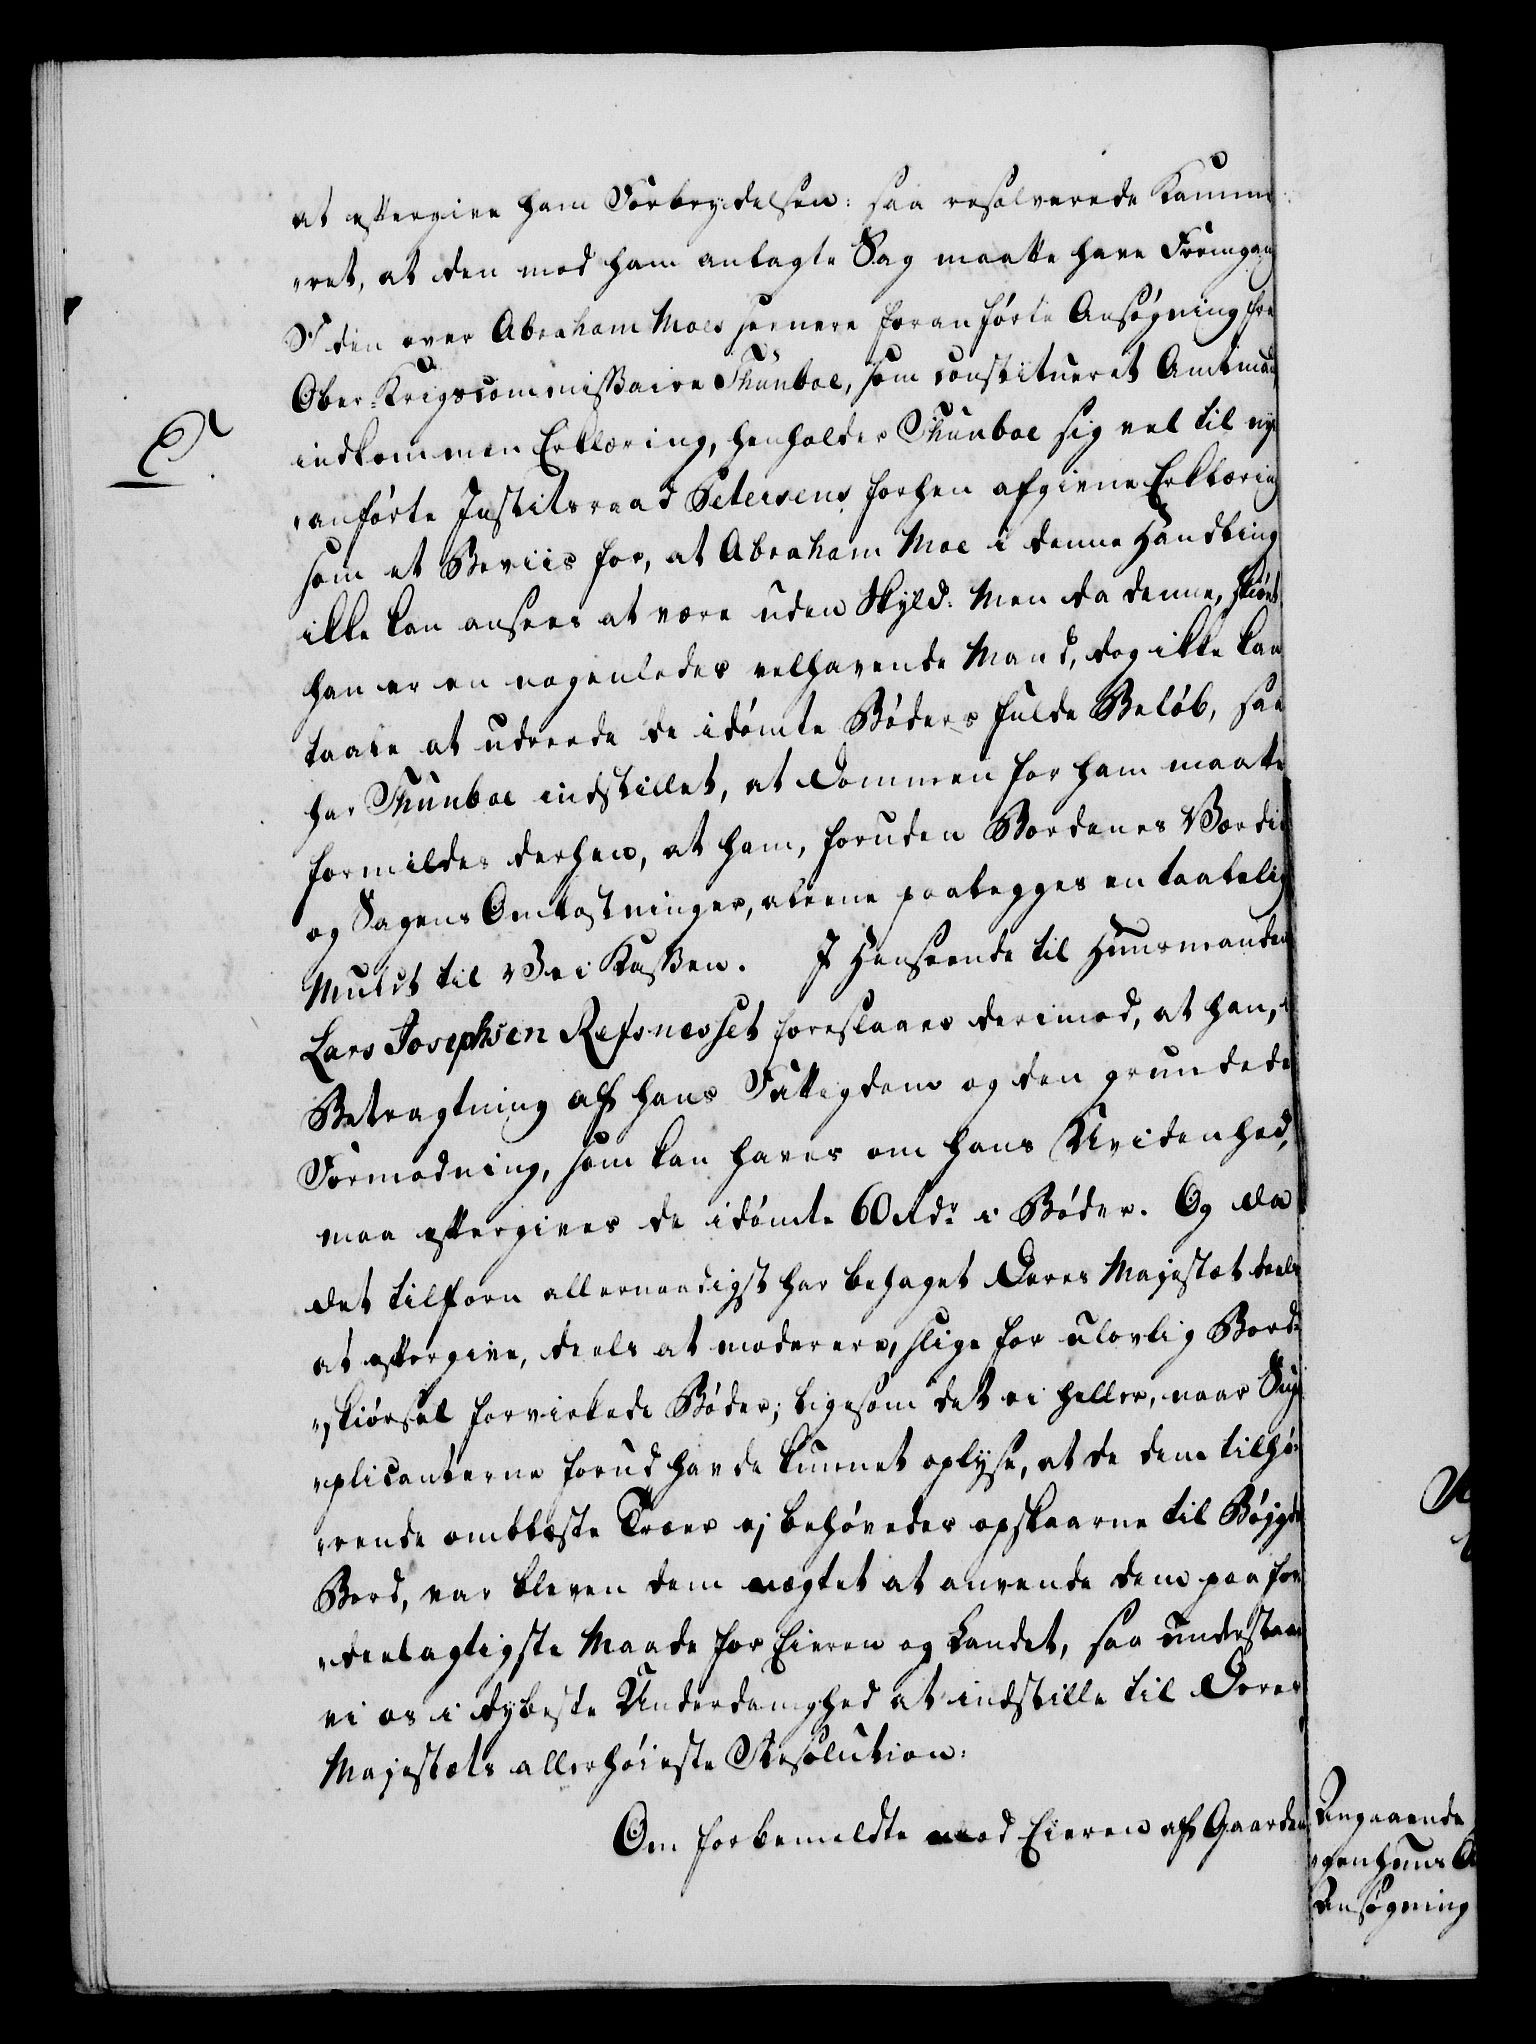 at eftergive ham Forbrydelsen: saa resolverede Kamme
„ret, at den mod ham anlagte Sag maatte have Fremgang
I den over Abraham Moes seenere foranførte Ansøgning fra
Ober-Krigscommissaire Thunboe, som constitueret Amtmand,
indkommen Erklæring, henholder Thunboe sig vel til nys
C.
„anførte Justitsraad Petersens forhen afgivne Erklæring
som et Beviis for, at Abraham Moe i denne Handling
ikke kan ansees at være uden Skyld: Men da denne, skiønt
han er en nogenledes velhavende Mand, dog ikke kan
taale at udreede de idømte Bøders fulde Beløb, saa
har Thunboe indstillet, at Dommen for ham maatte
formildes derhen, at ham, foruden Bordenes Værdie
og Sagens Omkostninger, alleene paalegges en taalelig
Mulct til Vei Kassen. I Henseende til Huusmanden
Lars Josephsen Refsnesset foreslaaes derimod, at han, i
Betragtning af hans Fattigdom og den grundede
Formodning, som kan haves om hans Uvidenhed,
maa eftergives de idømte 60 Rdr i Bøder. Og da
det tilforn allernaadigst har behaget Deres Majestæt deels
at eftergive, deels at moderere, slige for ulovlig Bord-
„skiørsel forvirkede Bøder; ligesom det ei heller, naar Sup-
„plicanterne forud havde kunnet oplyse, at de dem tilhø-
„rende omblæste Træer ej behøvedes opskaarne til Bøjgde
Bord, var bleven dem nægtet at anvende dem paa for-
„deelagtigste Maade for Eieren og Landet, saa understaae
vi os i dybeste Underdanighed at indstille til Deres
Majestæts allerhøieste Resolution:
Om forbemeldte mod Eieren af Gaarden
Angaaende
Ansøgning